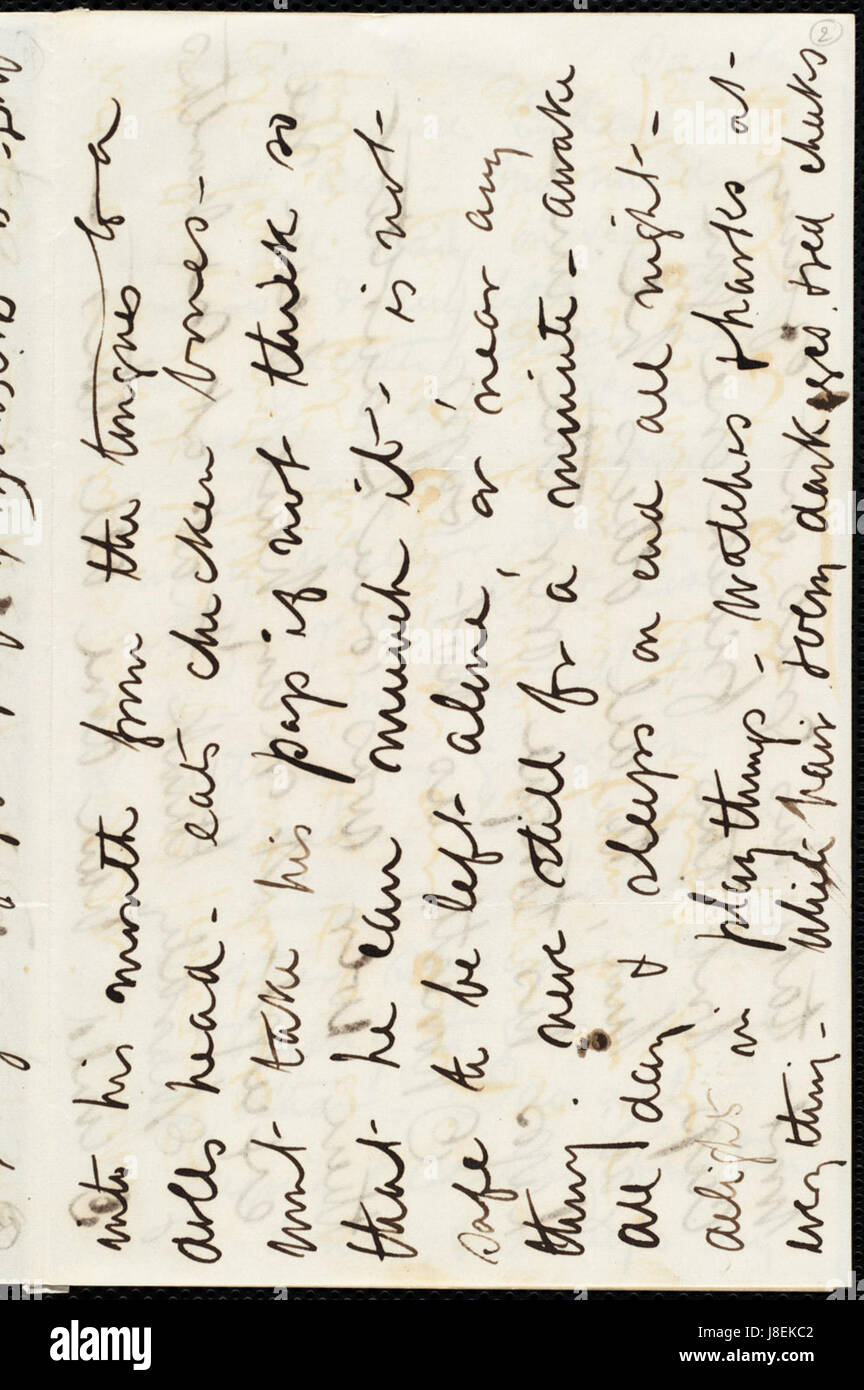 2
into his mouth from the tongues to a
dolls head - eats chicken bones -
wont take his pap if not thick so
that he can munch it - is not
safe to be left alone, or near any
thing. never still for a minute - awake
all day & sleeps on end all night -
delights in play things - watches & barks at
every thing - which hair very dark eyes & red cheeks
alamy
Image ID: J8EKC2
www.alamy.com